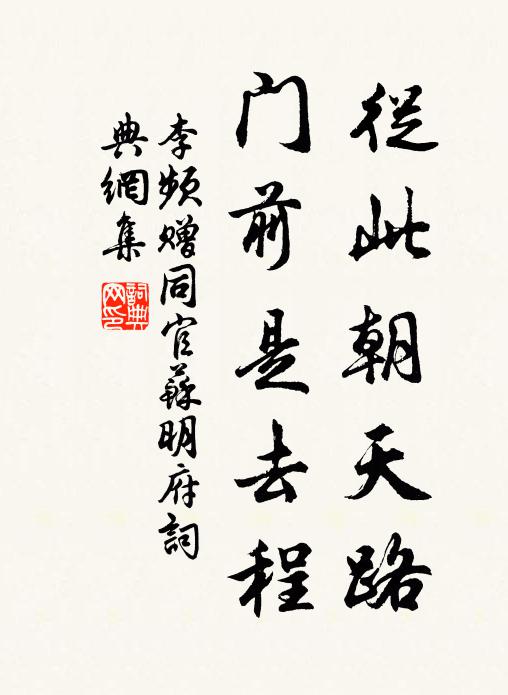 從此朝天路
门前是去程
李频赠同官蘇明府詞
典網集
詞典
网印